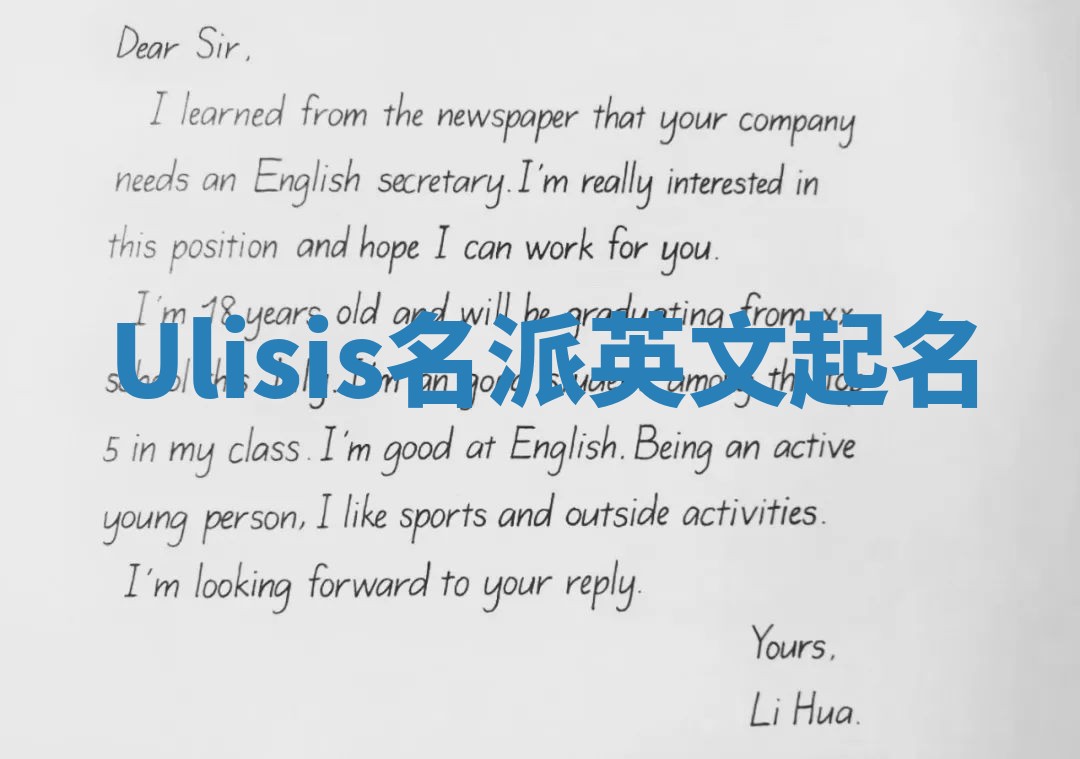 Dear Sir,
I learned from the newspaper that your company
needs an English secretary. I'm really interested in
this position and hope I can work for you.
I'm 18 years old and will be graduating from xx
Ulisis名派英文起名
school this July. I'm an good student among the top
5 in my class. I'm good at English. Being an active
young person, I like sports and outside activities.
I'm looking forward to your reply.
Yours,
Li Hua.